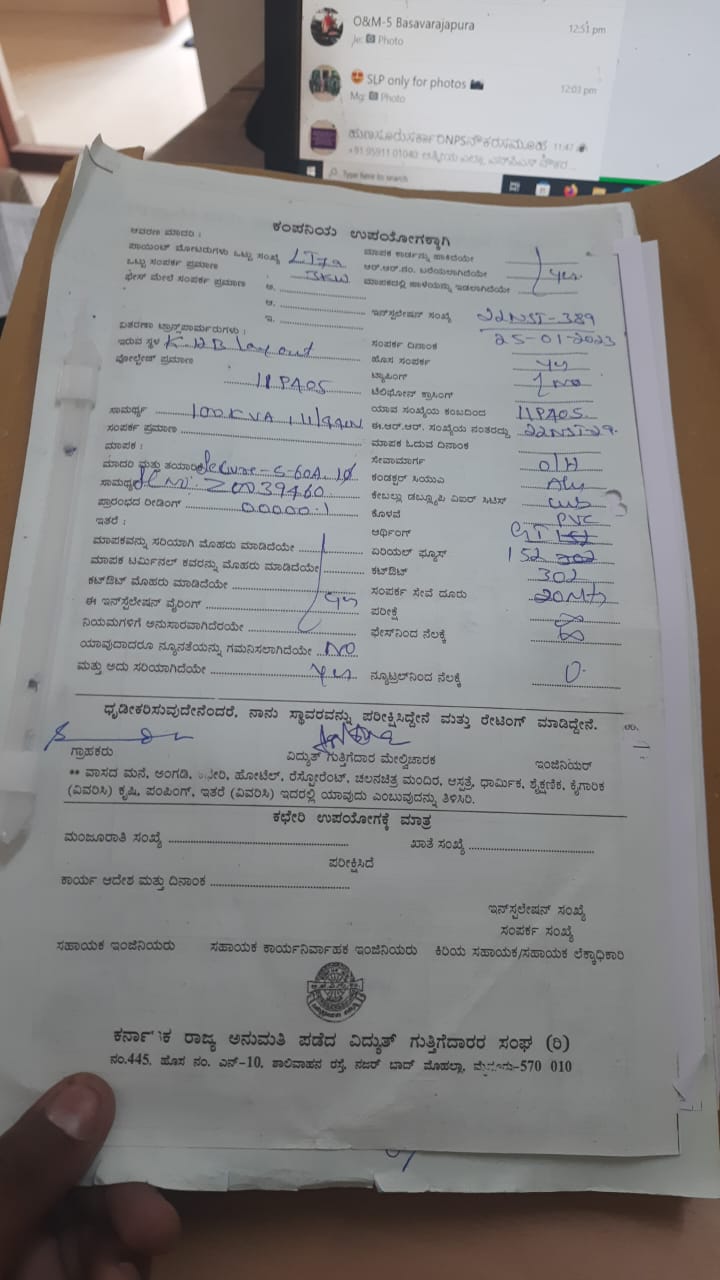 O&M-5 Basavarajapura 12:51 pm
Je: Photo
😍 SLP only for photos 📷 12:03 pm
Mg: Photo
11:47
+91 95911 01040:
Type here to search
ಕಂಪನಿಯ ಉಪಯೋಗಕ್ಕಾಗಿ
ಆವರಣ ಮಾದರಿ :
ಪಾಯಿಂಟ್ ಮೋಟರುಗಳು ಒಟ್ಟು ಸಂಖ್ಯೆ LT7a ಮಾಪಕ ಕಾರ್ಡನ್ನು ಹಾಕಿದೆಯೇ
ಒಟ್ಟು ಸಂಪರ್ಕ ಪ್ರಮಾಣ 3KW ಆರ್.ಆರ್.ನಂ. ಬರೆಯಲಾಗಿದೆಯೇ yes
ಫೇಸ್ ಮೇಲೆ ಸಂಪರ್ಕ ಪ್ರಮಾಣ ಅ. ಮಾಪಕದಲ್ಲಿ ಹಾಳೆಯನ್ನು ಇಡಲಾಗಿದೆಯೇ
ಆ.
ಇ. ಇನ್‌ಸ್ಟಲೇಷನ್ ಸಂಖ್ಯೆ 22NST-389
ವಿತರಣಾ ಟ್ರಾನ್ಸ್‌ಫಾರ್ಮರುಗಳು : ಸಂಪರ್ಕ ದಿನಾಂಕ 25-01-2023
ಇರುವ ಸ್ಥಳ KHB layout ಹೊಸ ಸಂಪರ್ಕ yes
ವೋಲ್ಟೇಜ್ ಪ್ರಮಾಣ ಟ್ಯಾಪಿಂಗ್
11PA05 ಟೆಲಿಫೋನ್ ಕ್ರಾಸಿಂಗ್ NO
ಸಾಮರ್ಥ್ಯ 100KVA ಯಾವ ಸಂಖ್ಯೆಯ ಕಂಬದಿಂದ 11PA05
ಸಂಪರ್ಕ ಪ್ರಮಾಣ ಈ.ಆರ್.ಆರ್. ಸಂಖ್ಯೆಯ ನಂತರದ್ದು 22NST-29
ಮಾಪಕ : ಮಾಪಕ ಓದುವ ದಿನಾಂಕ
ಮಾದರಿ ಮತ್ತು ತಯಾರಿಕೆ Secure-5-60A. 1Ø ಸೇವಾಮಾರ್ಗ O/H
ಸಾಮರ್ಥ್ಯ ಕಂಡಕ್ಟರ್ ಸಿಯುಎ Alu
ಪ್ರಾರಂಭದ ರೀಡಿಂಗ್ 00000.1 ಕೇಬಲ್ಲು ಡಬ್ಲ್ಯೂಪಿ ಎಐರ್ ಸಿಟಿಸ್
ಇತರೆ : ಕೊಳವೆ PVC
ಮಾಪಕವನ್ನು ಸರಿಯಾಗಿ ಮೊಹರು ಮಾಡಿದೆಯೇ ಅರ್ಥಿಂಗ್ GI
ಮಾಪಕ ಟರ್ಮಿನಲ್ ಕವರನ್ನು ಮೊಹರು ಮಾಡಿದೆಯೇ ಏರಿಯಲ್ ಫ್ಯೂಸ್ 152
ಕಟ್‌ಔಟ್ ಮೊಹರು ಮಾಡಿದೆಯೇ ಕಟ್‌ಔಟ್ 302
ಈ ಇನ್‌ಸ್ಟಲೇಷನ್ ವೈರಿಂಗ್ yes ಸಂಪರ್ಕ ಸೇವೆ ದೂರು 20Mts
ನಿಯಮಗಳಿಗೆ ಅನುಸಾರವಾಗಿದೆರಯೇ ಪರೀಕ್ಷೆ ∞
ಯಾವುದಾದರೂ ನ್ಯೂನತೆಯನ್ನು ಗಮನಿಸಲಾಗಿದೆಯೇ NO ಫೇಸ್‌ನಿಂದ ನೆಲಕ್ಕೆ ∞
ಮತ್ತು ಅದು ಸರಿಯಾಗಿದೆಯೇ Yes ನ್ಯೂಟ್ರಲ್‌ನಿಂದ ನೆಲಕ್ಕೆ 0
ಧೃಡೀಕರಿಸುವುದೇನೆಂದರೆ, ನಾನು ಸ್ಥಾವರವನ್ನು ಪರೀಕ್ಷಿಸಿದ್ದೇನೆ ಮತ್ತು ರೇಟಿಂಗ್ ಮಾಡಿದ್ದೇನೆ.
ಗ್ರಾಹಕರು ವಿದ್ಯುತ್ ಗುತ್ತಿಗೆದಾರ ಮೇಲ್ವಿಚಾರಕ ಇಂಜಿನಿಯರ್
** ವಾಸದ ಮನೆ, ಅಂಗಡಿ, ಹೋಟೆಲ್, ರೆಸ್ಟೋರೆಂಟ್, ಚಲನಚಿತ್ರ ಮಂದಿರ, ಆಸ್ಪತ್ರೆ, ಧಾರ್ಮಿಕ, ಶೈಕ್ಷಣಿಕ, ಕೈಗಾರಿಕ
(ವಿವರಿಸಿ) ಕೃಷಿ, ಪಂಪಿಂಗ್, ಇತರೆ (ವಿವರಿಸಿ) ಇದರಲ್ಲಿ ಯಾವುದು ಎಂಬುವುದನ್ನು ತಿಳಿಸಿರಿ.
ಕಛೇರಿ ಉಪಯೋಗಕ್ಕೆ ಮಾತ್ರ
ಮಂಜೂರಾತಿ ಸಂಖ್ಯೆ ಖಾತೆ ಸಂಖ್ಯೆ
ಪರೀಕ್ಷಿಸಿದೆ
ಕಾರ್ಯ ಆದೇಶ ಮತ್ತು ದಿನಾಂಕ
ಇನ್‌ಸ್ಟಲೇಷನ್ ಸಂಖ್ಯೆ
ಸಂಪರ್ಕ ಸಂಖ್ಯೆ
ಸಹಾಯಕ ಇಂಜಿನಿಯರು ಸಹಾಯಕ ಕಾರ್ಯನಿರ್ವಾಹಕ ಇಂಜಿನಿಯರು ಕಿರಿಯ ಸಹಾಯಕ/ಸಹಾಯಕ ಲೆಕ್ಕಾಧಿಕಾರಿ
ಕರ್ನಾಟಕ ರಾಜ್ಯ ಅನುಮತಿ ಪಡೆದ ವಿದ್ಯುತ್ ಗುತ್ತಿಗೆದಾರರ ಸಂಘ (ರಿ)
ನಂ.445, ಹೊಸ ನಂ. ಎನ್-10, ಶಾಲಿವಾಹನ ರಸ್ತೆ, ನಜರ್ ಬಾದ್ ಮೊಹಲ್ಲಾ, ಮೈಸೂರು-570 010